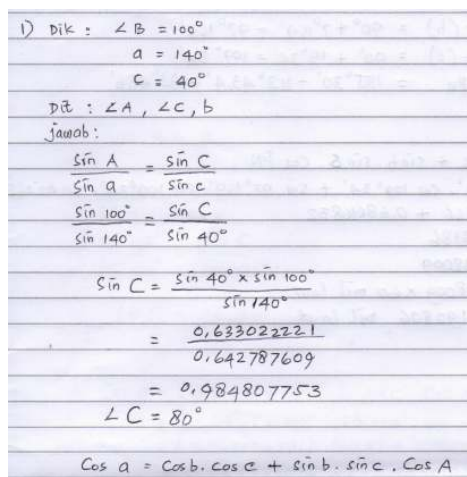 1) Dik : ∠B = 100°
a = 140°
c = 40°
Dit : ∠A, ∠C, b
jawab :
sin A / sin a = sin C / sin c
sin 100° / sin 140° = sin C / sin 40°
sin C = sin 40° x sin 100° / sin 140°
= 0,633022221 / 0,642787609
= 0,984807753
∠C = 80°
Cos a = Cos b. cos c + sin b. sin c. Cos A